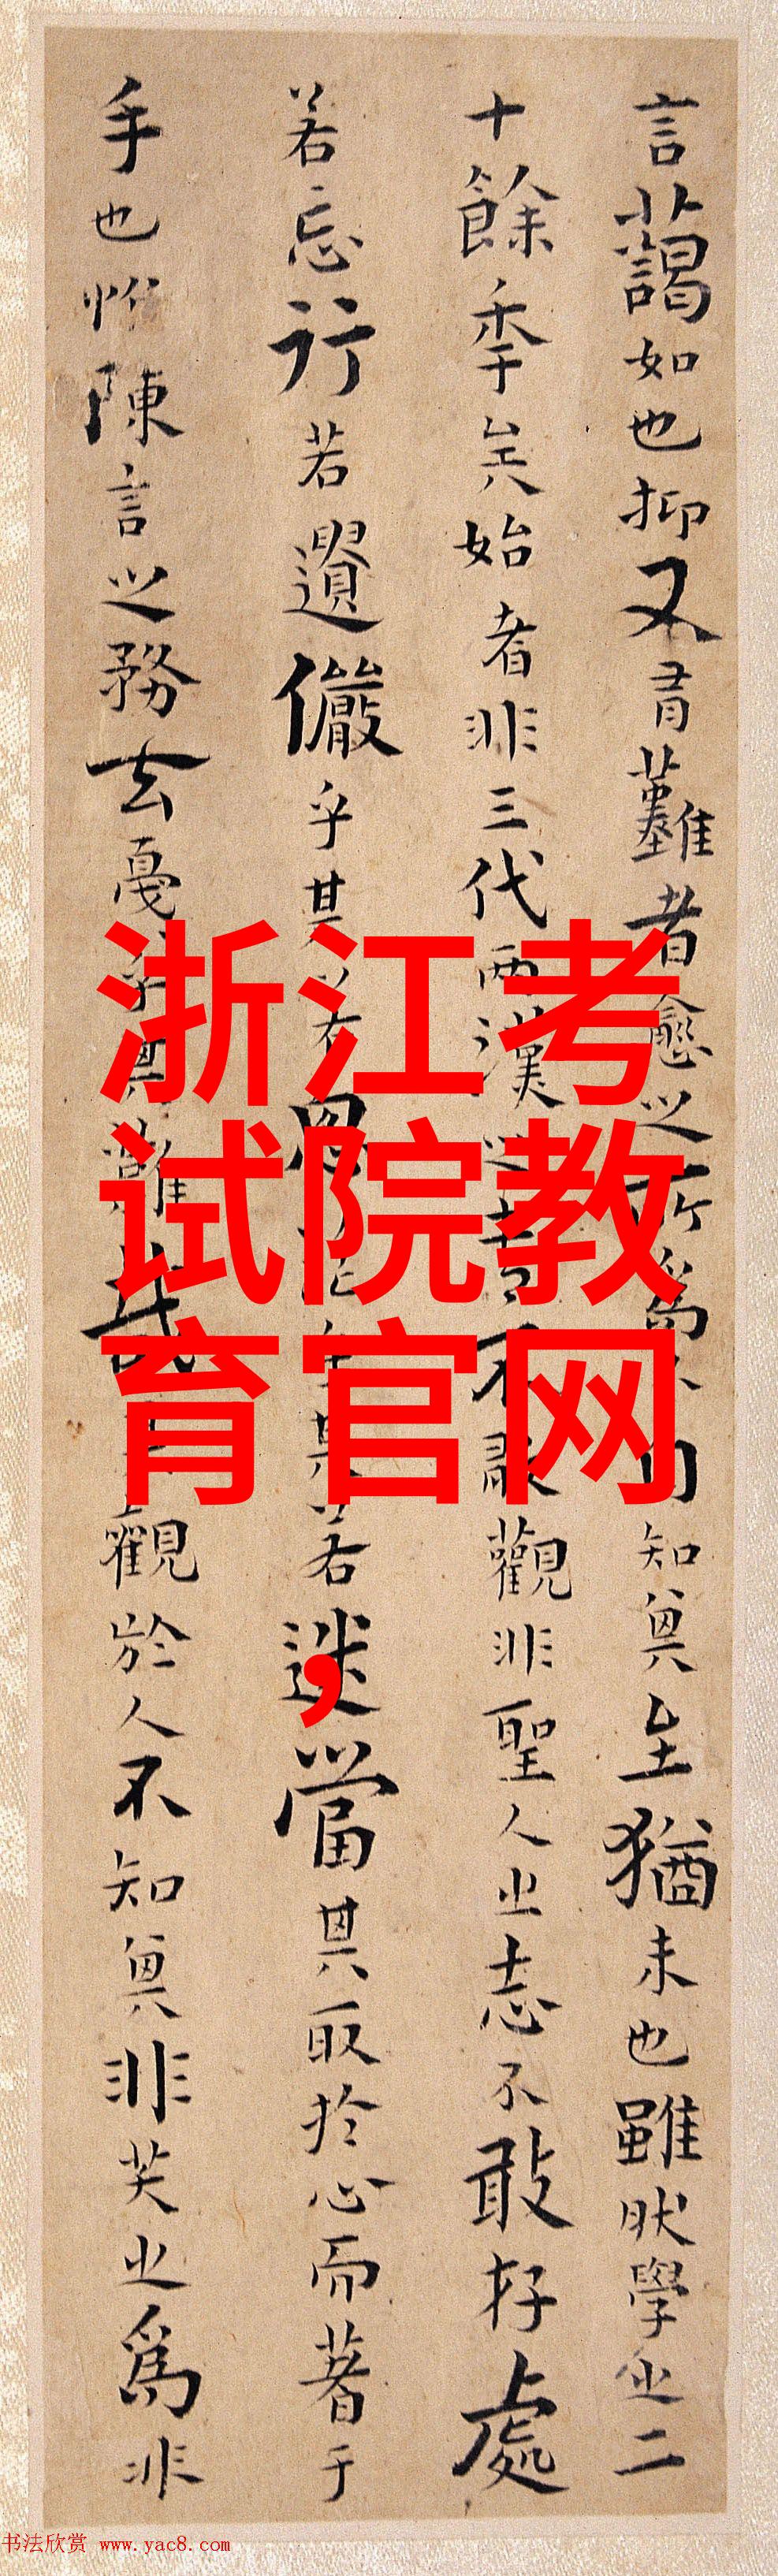 言藹如也抑又有難者愈之所爲不自知其至猶未也雖然學之二
十餘年矣始者非三代兩漢之書不敢觀非聖人之志不敢存處
若忘行若遺儼乎其若思茫乎其若迷當其取於心而著于
手也惟陳言之務去戛乎其難哉其觀於人不知其非笑之爲非
浙江考
试院教
育官网
，
书法欣赏 www.yac8.com